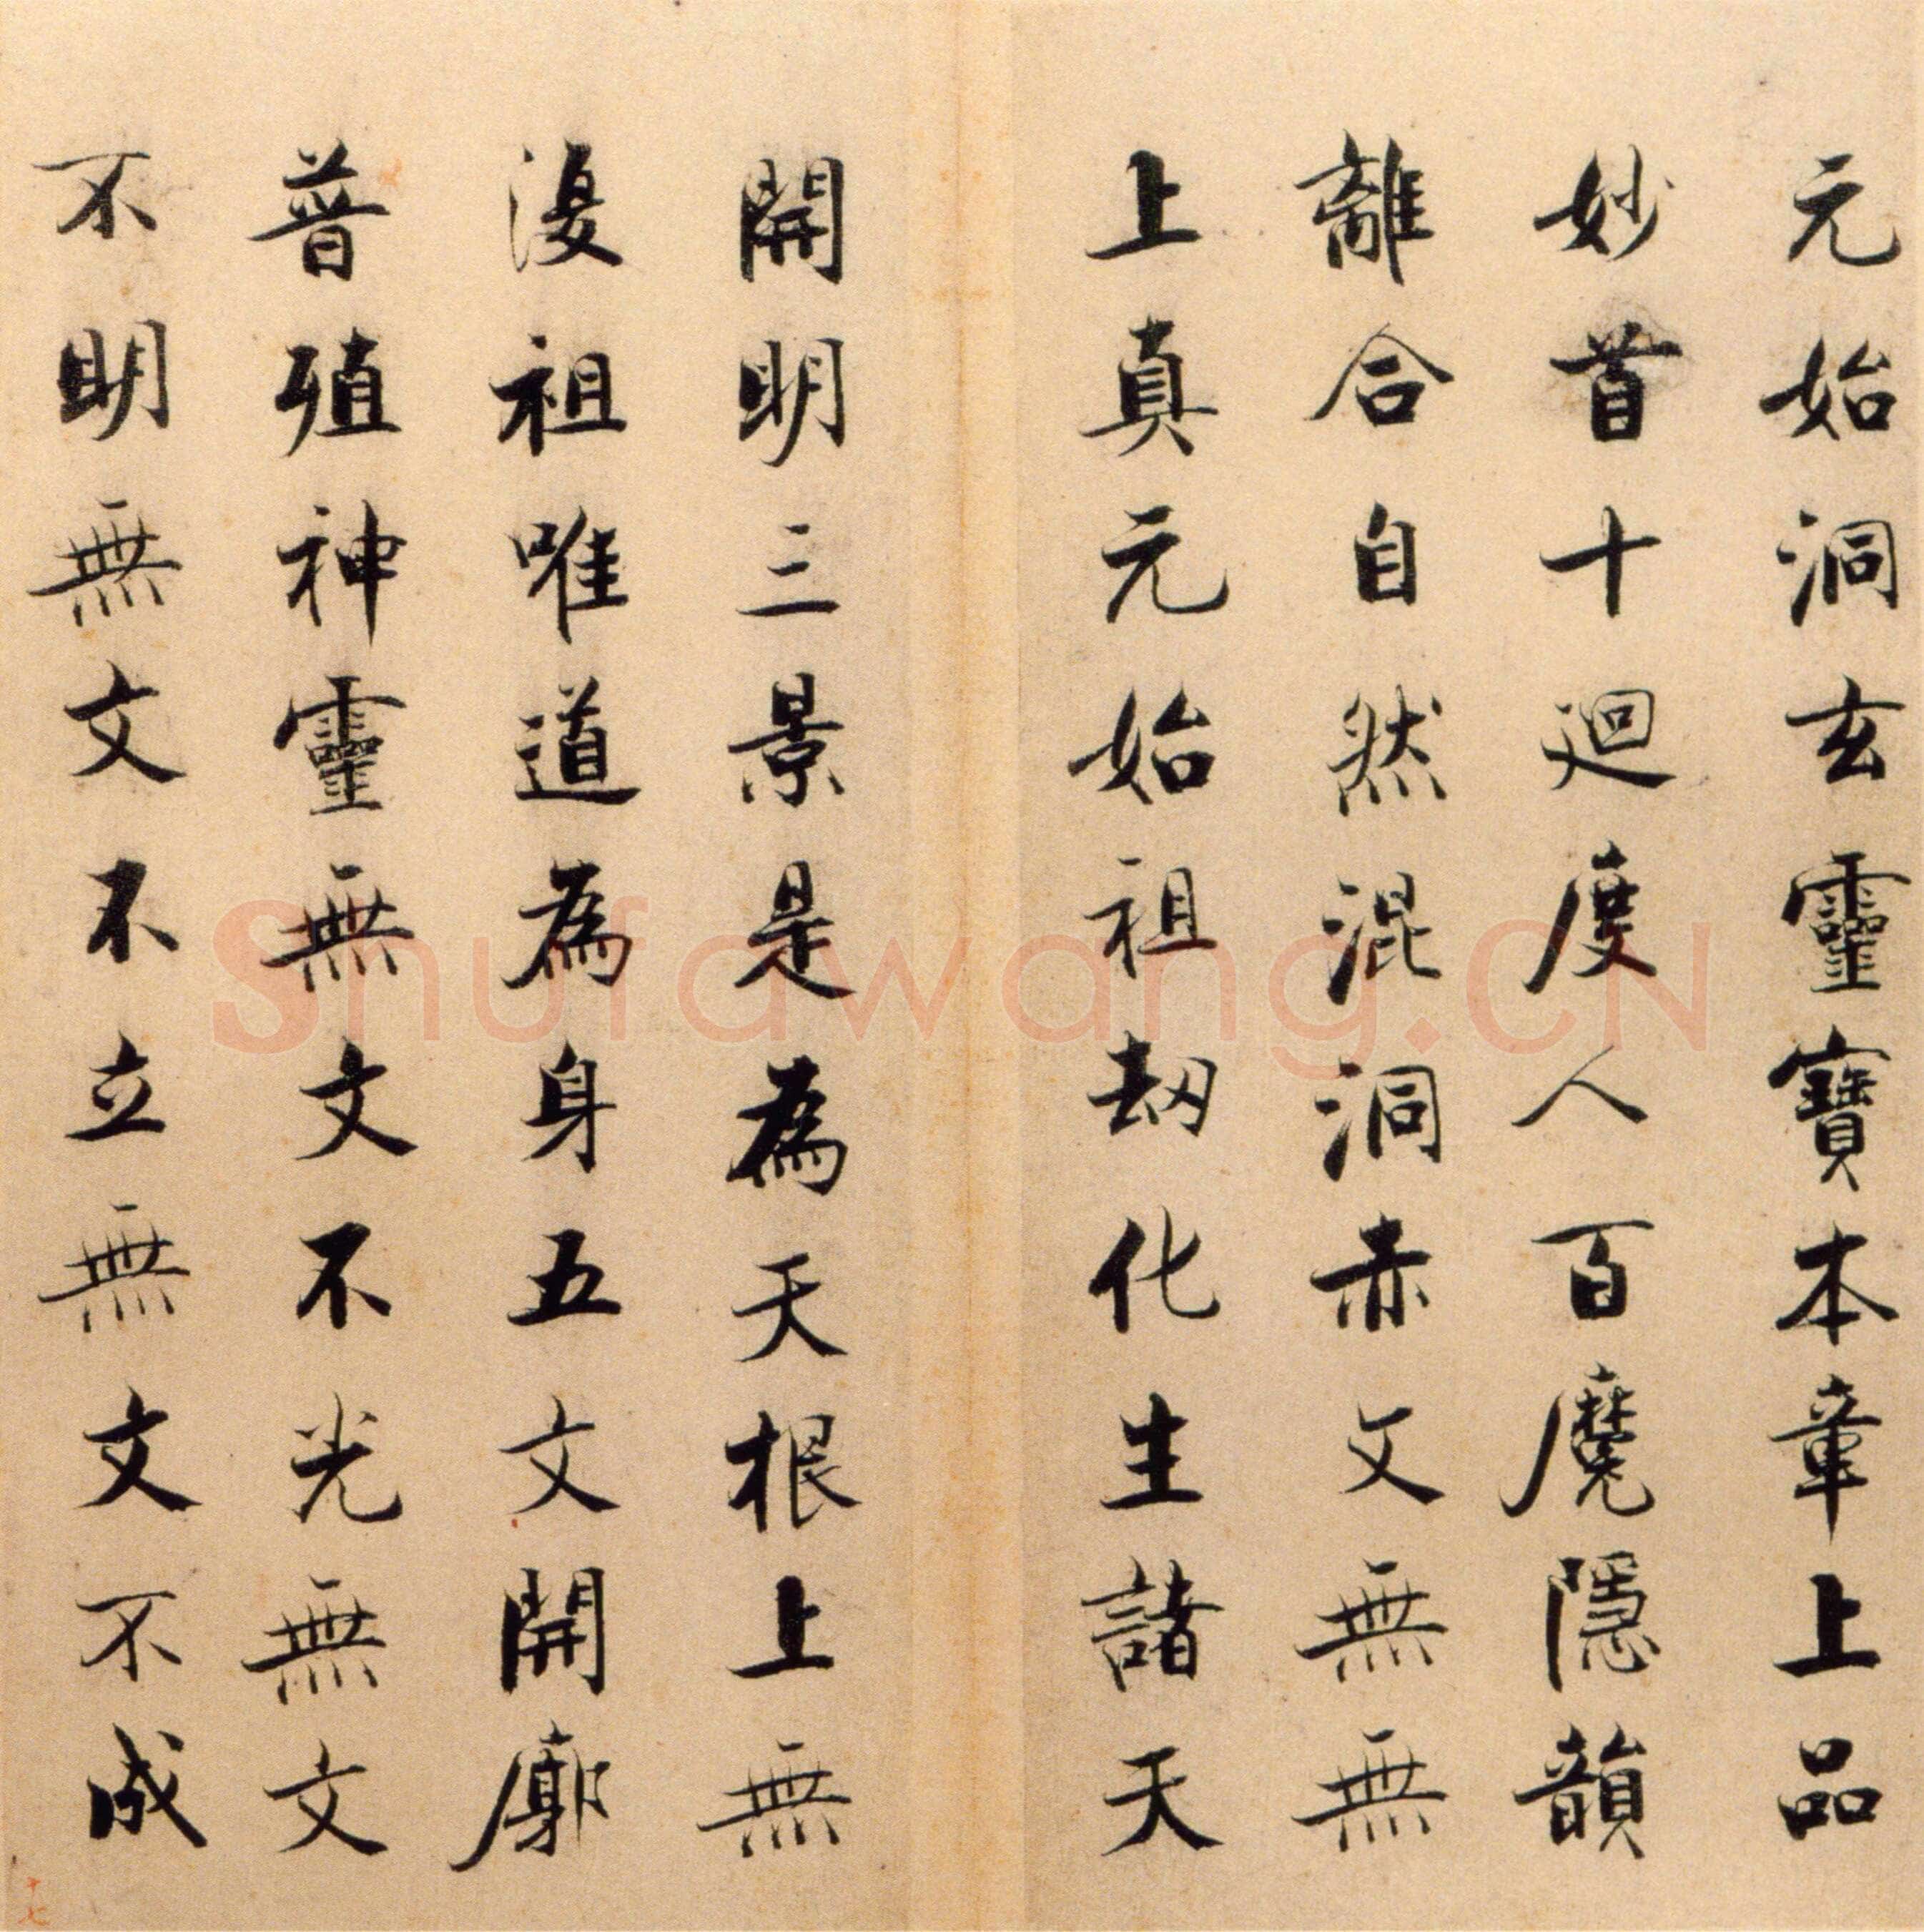 元始洞玄靈寶本章上品
妙首十迴度人百魔隱韻
離合自然混洞赤文無無
上真元始祖劫化生諸天
開明三景是為天根上無
復祖唯道為身五文開廓
普殖神靈無文不光無文
不明無文不立無文不成
十七
Shufawang.CN